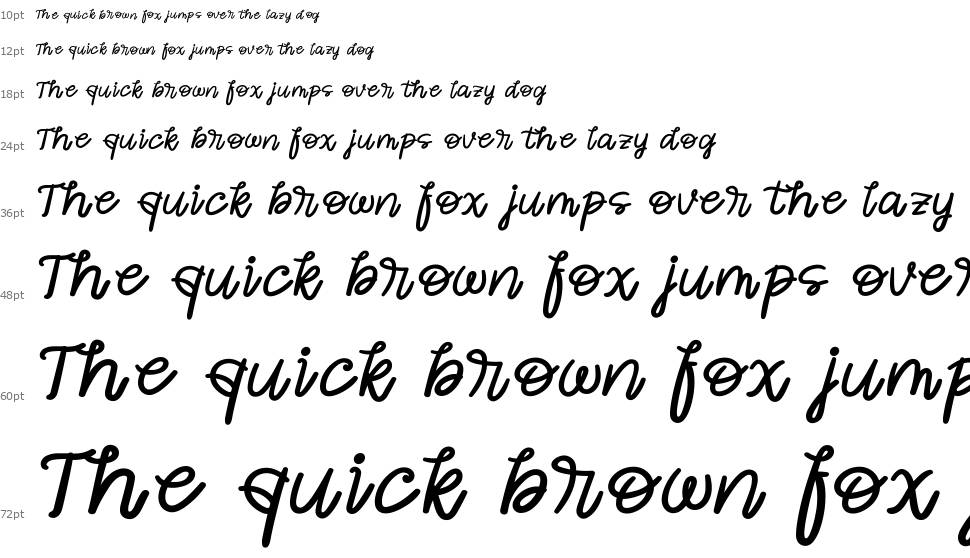 10pt The quick brown fox jumps over the lazy dog
12pt The quick brown fox jumps over the lazy dog
18pt The quick brown fox jumps over the lazy dog
24pt The quick brown fox jumps over the lazy dog
36pt The quick brown fox jumps over the lazy
48pt The quick brown fox jumps over
60pt The quick brown fox jump
72pt The quick brown fox